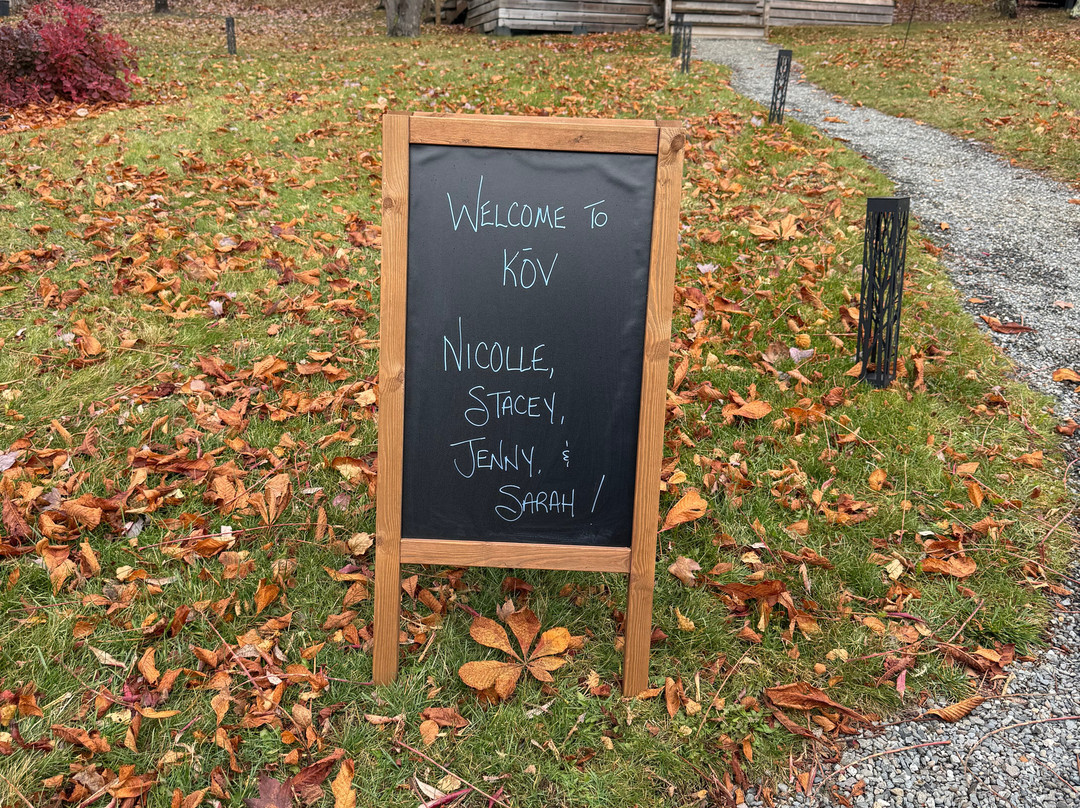 WELCOME TO
KŌV
NICOLLE,
STACEY,
JENNY, &
SARAH!